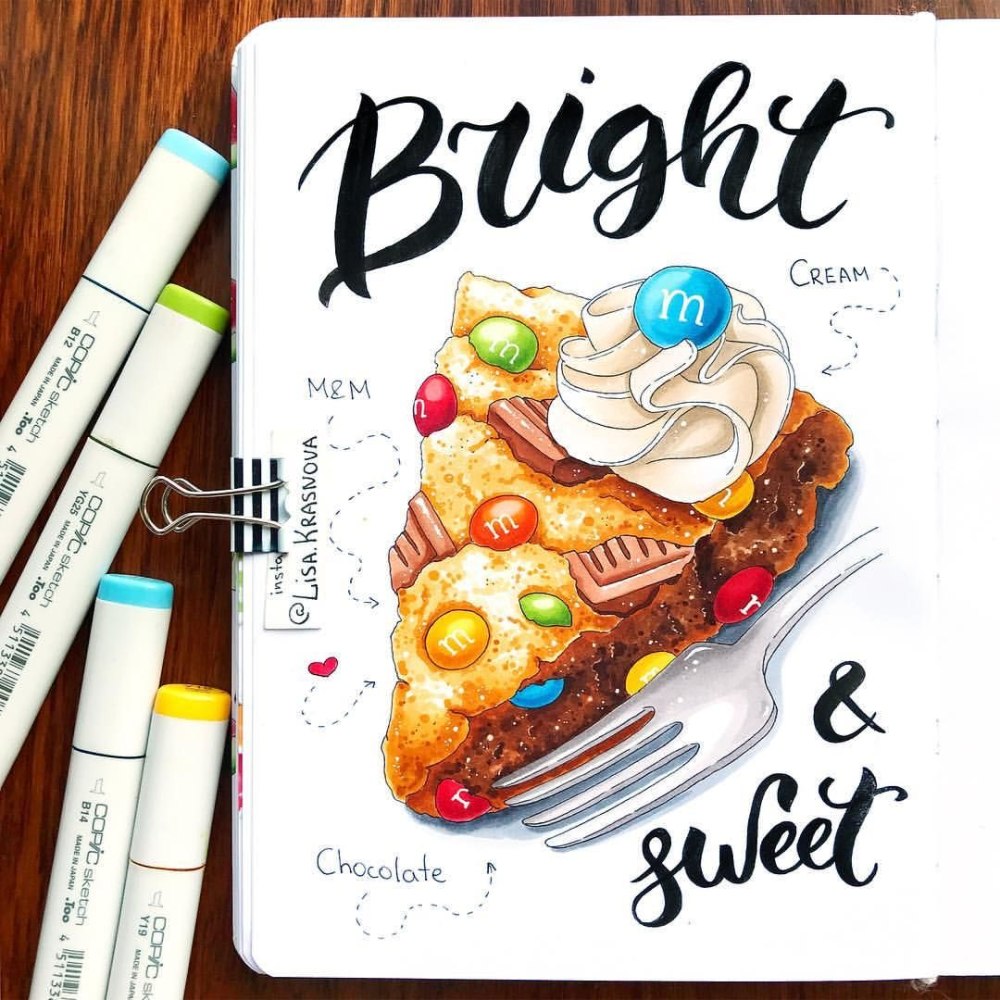 Bright
CREAM
M&M
m
m
m
m
insta
@LISA.KRASNOVA
&
sweet
Chocolate
B12
COPIC sketch
MADE IN JAPAN .Too
YG25
COPIC sketch
MADE IN JAPAN .Too
B14
COPIC sketch
MADE IN JAPAN .Too
Y19
COPIC sketch
MADE IN JAPAN .Too